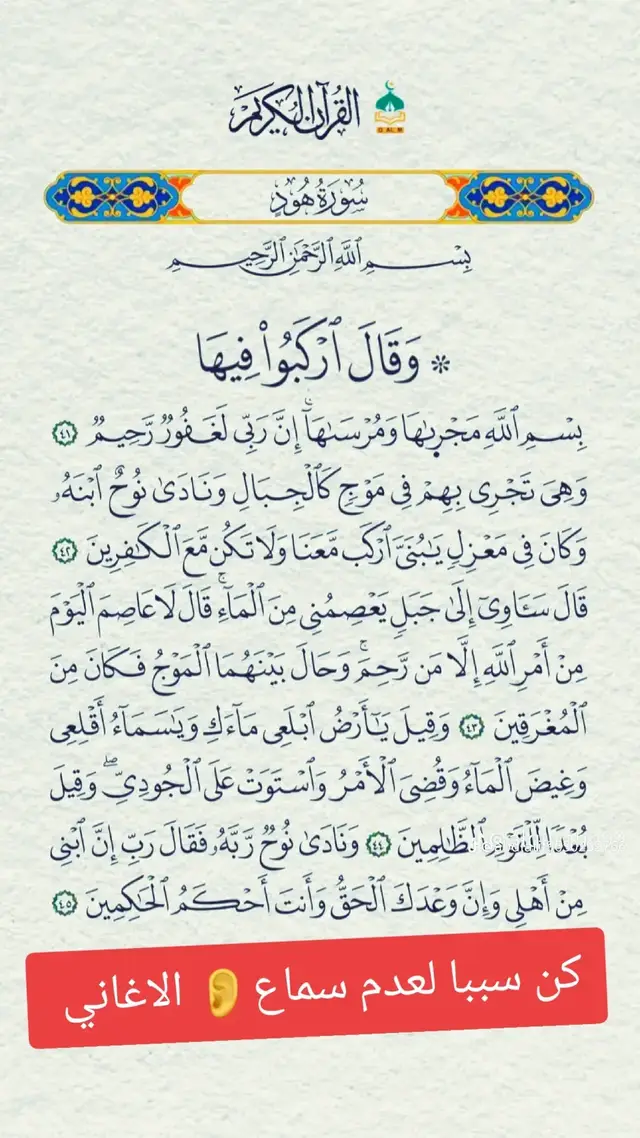 القرآن الكريم
QALM
سُورَةُ هُودٍ
بِسْمِ ٱللَّهِ ٱلرَّحْمَٰنِ ٱلرَّحِيمِ
* وَقَالَ ٱرْكَبُوا۟ فِيهَا
بِسْمِ ٱللَّهِ مَجْر۪ىٰهَا وَمُرْسَىٰهَآ ۚ إِنَّ رَبِّى لَغَفُورٌ رَّحِيمٌ ٤١
وَهِىَ تَجْرِى بِهِمْ فِى مَوْجٍ كَٱلْجِبَالِ وَنَادَىٰ نُوحٌ ٱبْنَهُۥ
وَكَانَ فِى مَعْزِلٍ يَٰبُنَىَّ ٱرْكَب مَّعَنَا وَلَا تَكُن مَّعَ ٱلْكَٰفِرِينَ ٤٢
قَالَ سَـَٔاوِىٓ إِلَىٰ جَبَلٍ يَعْصِمُنِى مِنَ ٱلْمَآءِ ۚ قَالَ لَا عَاصِمَ ٱلْيَوْمَ
مِنْ أَمْرِ ٱللَّهِ إِلَّا مَن رَّحِمَ ۚ وَحَالَ بَيْنَهُمَا ٱلْمَوْجُ فَكَانَ مِنَ
ٱلْمُغْرَقِينَ ٤٣ وَقِيلَ يَٰٓأَرْضُ ٱبْلَعِى مَآءَكِ وَيَٰسَمَآءُ أَقْلِعِى
وَغِيضَ ٱلْمَآءُ وَقُضِىَ ٱلْأَمْرُ وَٱسْتَوَتْ عَلَى ٱلْجُودِىِّ ۖ وَقِيلَ
بُعْدًا لِّلْقَوْمِ ٱلظَّٰلِمِينَ ٤٤ وَنَادَىٰ نُوحٌ رَّبَّهُۥ فَقَالَ رَبِّ إِنَّ ٱبْنِى
مِنْ أَهْلِى وَإِنَّ وَعْدَكَ ٱلْحَقُّ وَأَنتَ أَحْكَمُ ٱلْحَٰكِمِينَ ٤٥
كن سببا لعدم سماع 👂 الاغاني